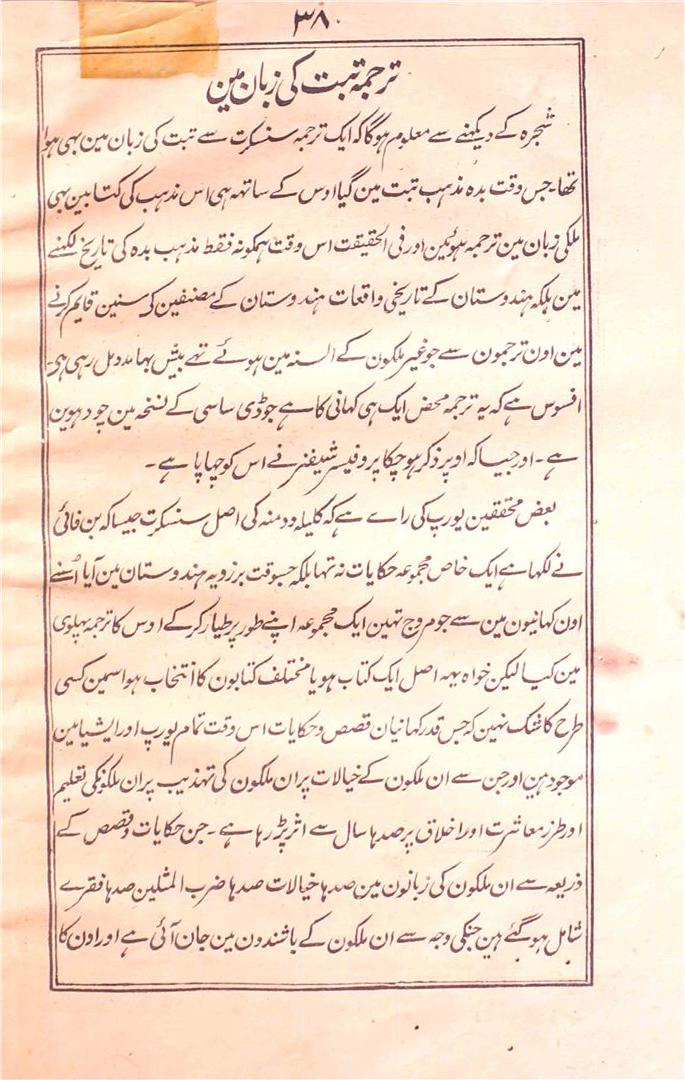 ۳۸۰
ترجمہ تبت کی زبان مین
شجرہ کے دیکہنے سے معلوم ہوگا کہ ایک ترجمہ سنسکرت سے تبت کی زبان مین بہی ہوا
تھا۔ جس وقت بدہ مذہب تبت مین گیا اوس کے ساتہہ ہی اس مذہب کی کتابین بہی
ملکی زبان مین ترجمہ ہوئین اور فی الحقیقت اس وقت ہمکو نہ فقط مذہب بدہ کی تاریخ لکہنے
مین بلکہ ہندوستان کے تاریخی واقعات ہندوستان کے مصنفین کے سنین قایم کرنے
مین اون ترجمون سے جو غیر ملکون کے السنہ مین ہوئے تہے بیش بہا مدد مل رہی ہی۔
افسوس ہے کہ یہ ترجمہ محض ایک ہی کہانی کا ہے جو ڈی ساسی کے نسخہ مین چودہوین
ہے۔ اور جیسا کہ اوپر ذکر ہو چکا پروفیسر شیفنر نے اس کو چہاپا ہے۔
بعض محققین یورپ کی راے ہے کہ کلیلہ و دمنہ کی اصل سنسکرت جیسا کہ بن فائی
نے لکہا ہے ایک خاص مجموعہ حکایات نہ تہا بلکہ جسوقت برزویہ ہندوستان مین آیا اُسنے
اون کہانیون مین سے جو مروج تہین ایک مجموعہ اپنے طور پر طیار کرکے اوس کا ترجمہ پہلوی
مین کیا لیکن خواہ یہہ اصل ایک کتاب ہو یا مختلف کتابون کا انتخاب ہو اسمین کسی
طرح کا شک نہین کہ جس قدر کہانیان قصص و حکایات اس وقت تمام یورپ اور ایشیا مین
موجود ہین اور جن سے ان ملکون کے خیالات پر ان ملکون کی تہذیب پر ان ملکونکی تعلیم
اور طرز معاشرت اور اخلاق پر صدہا سال سے اثر پڑ رہا ہے۔ جن حکایات و قصص کے
ذریعہ سے ان ملکون کی زبانون مین صدہا خیالات صدہا ضرب المثلین صدہا فقرے
شامل ہو گئے ہین جنکی وجہ سے ان ملکون کے باشندون مین جان آئی ہے اور اون کا